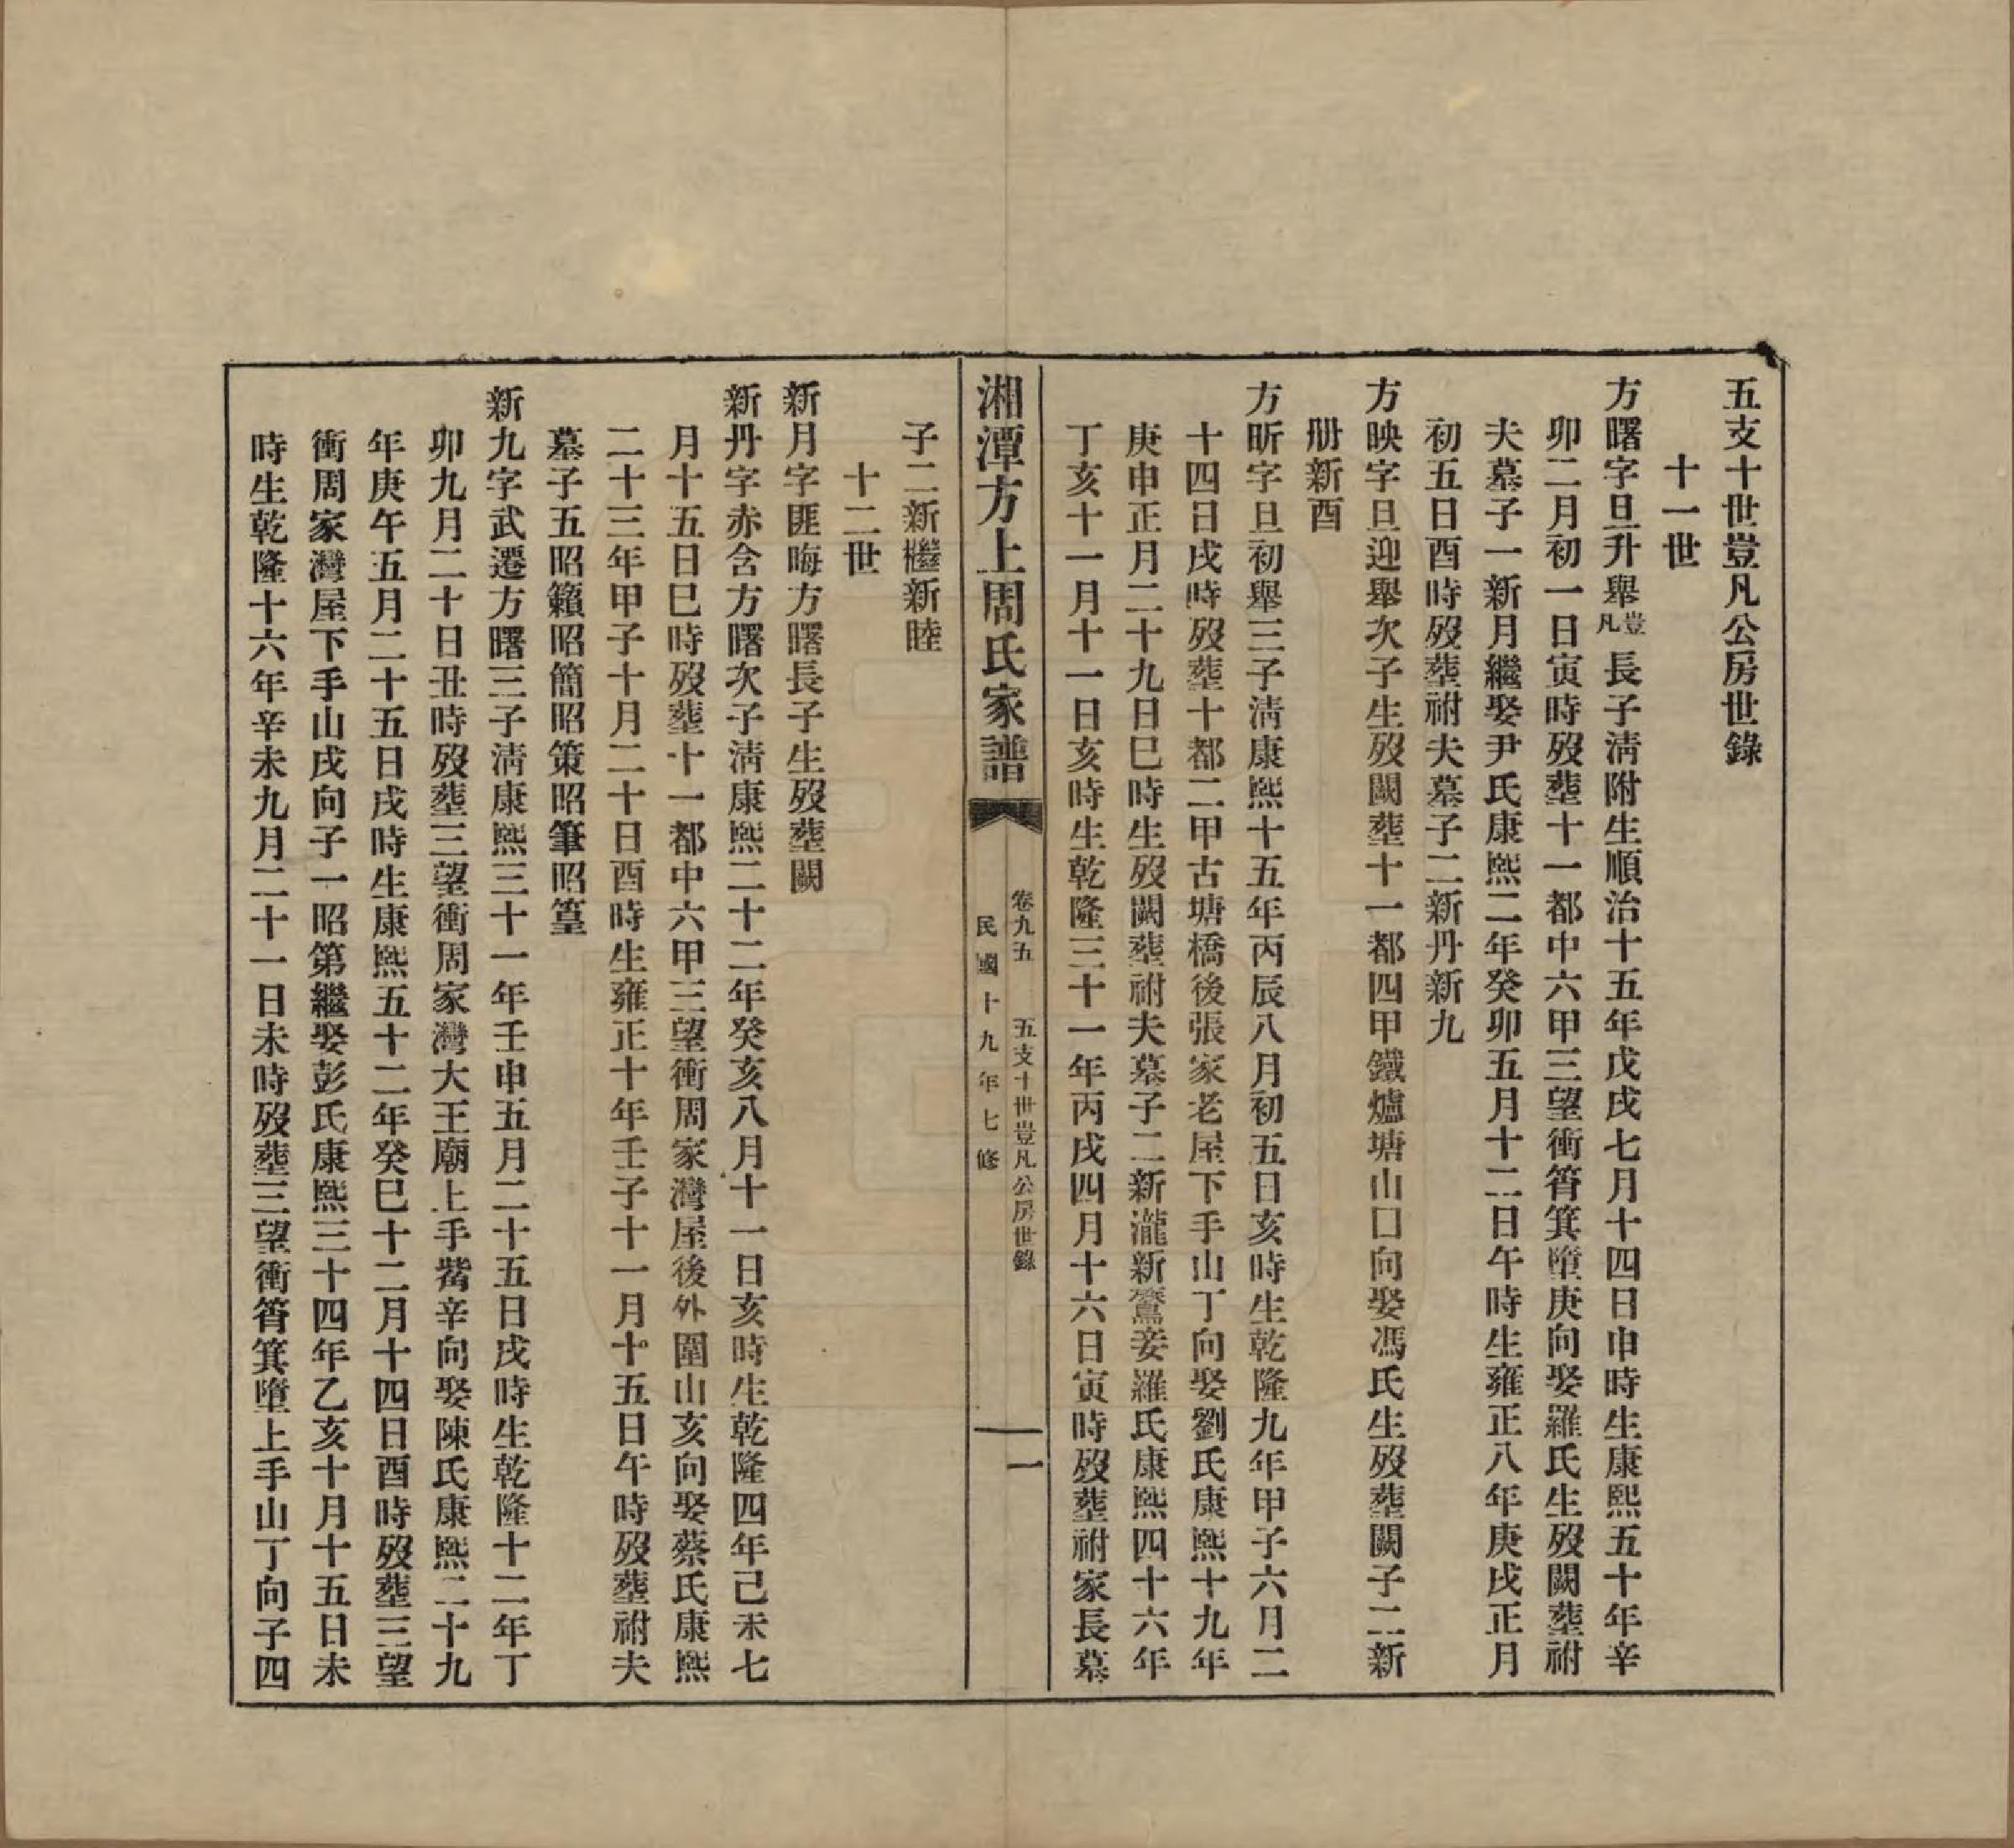 五支十世豈凡公房世錄
十一世
方曙字旦升舉豈凡長子淸附生順治十五年戊戌七月十四日申時生康熙五十年辛
卯二月初一日寅時歿葬十一都中六甲三望衝筲箕墮庚向娶羅氏生歿闕葬祔
夫墓子一新月繼娶尹氏康熙二年癸卯五月十二日午時生雍正八年庚戌正月
初五日酉時歿葬祔夫墓子二新丹新九
方映字旦迎舉次子生歿闕葬十一都四甲鐵爐塘山囗向娶馮氏生歿葬闕子二新
册新酉
方昕字旦初舉三子淸康熙十五年丙辰八月初五日亥時生乾隆九年甲子六月二
十四日戌時歿葬十都二甲古塘橋後張家老屋下手山丁向娶劉氏康熙十九年
庚申正月二十九日巳時生歿闕葬祔夫墓子二新瀧新鶩妾羅氏康熙四十六年
丁亥十一月十一日亥時生乾隆三十一年丙戌四月十六日寅時歿葬祔家長墓
湘潭方上周氏家譜
卷九五 五支十世豈凡公房世錄
民國十九年七修
一
子二新繼新睦
十二世
新月字匪晦方曙長子生歿葬闕
新丹字赤含方曙次子淸康熙二十二年癸亥八月十一日亥時生乾隆四年己未七
月十五日巳時歿葬十一都中六甲三望衝周家灣屋後外圍山亥向娶蔡氏康熙
二十三年甲子十月二十日酉時生雍正十年壬子十一月十五日午時歿葬祔夫
墓子五昭籟昭簡昭策昭筆昭篁
新九字武遷方曙三子淸康熙三十一年壬申五月二十五日戌時生乾隆十二年丁
卯九月二十日丑時歿葬三望衝周家灣大王廟上手觜辛向娶陳氏康熙二十九
年庚午五月二十五日戌時生康熙五十二年癸巳十二月十四日酉時歿葬三望
衝周家灣屋下手山戌向子一昭第繼娶彭氏康熙三十四年乙亥十月十五日未
時生乾隆十六年辛未九月二十一日未時歿葬三望衝筲箕墮上手山丁向子四